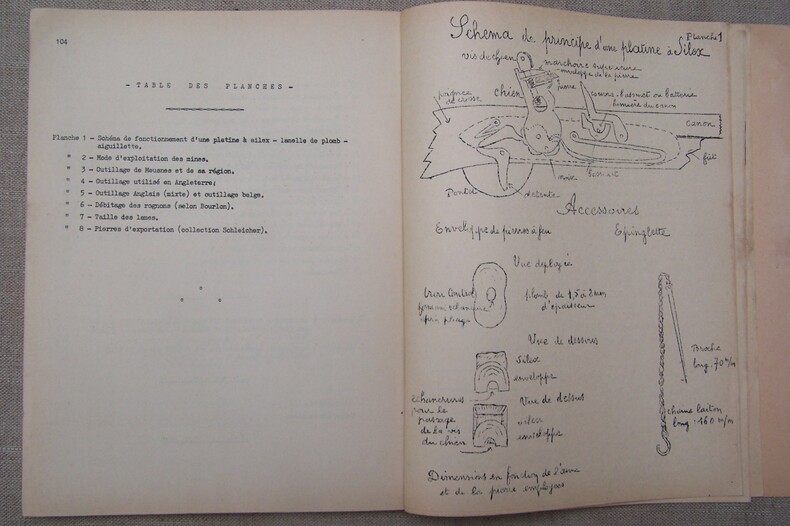 104
- TABLE DES PLANCHES -
Planche 1 - Schéma de fonctionnement d'une platine à silex - lamelle de plomb -
aiguillette.
" 2 - Mode d'exploitation des mines.
" 3 - Outillage de Meusnes et de sa région.
" 4 - Outillage utilisé en Angleterre;
" 5 - Outillage Anglais (mixte) et outillage belge.
" 6 - Débitage des rognons (selon Bourlon).
" 7 - Taille des lames.
" 8 - Pierres d'exportation (collection Schleicher).
Planche 1
Schéma de principe d'une platine à Silex
vis de chien
machoire supérieure
de la pierre
chien
pierre
ou batterie
poignée
de crosse
lumière du canon
canon
fût
noix
ressort
Pontet
détente
Accessoires
Enveloppe de pierres à feu
Epinglette
Vue déployée
trou central
plomb de 1,5 à 2 mm
d'épaisseur
après pliage
Vue de dessous
Silex
enveloppe
Broche
long. 70 m/m
échancrures
pour le
passage
de la vis
du chien
Vue de dessus
silex
enveloppe
chaine laiton
long : 160 m/m
Dimensions en fonction de l'arme
et de la pierre employée